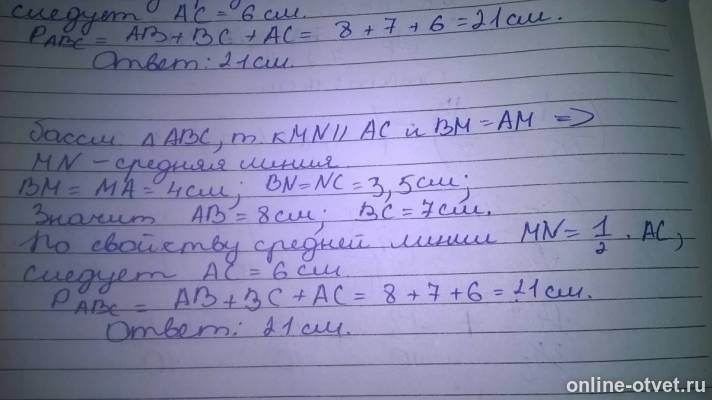 следует AC = 6 см.
P ABC = AB + BC + AC = 8 + 7 + 6 = 21 см.
Ответ: 21 см.
Рассм. △ ABC, т. к MN || AC и BM = AM =>
MN - средняя линия
BM = MA = 4 см; BN = NC = 3,5 см;
Значит AB = 8 см; BC = 7 см.
По свойству средней линии MN = 1/2 · AC,
следует AC = 6 см
P ABC = AB + BC + AC = 8 + 7 + 6 = 21 см.
Ответ: 21 см.
online-otvet.ru